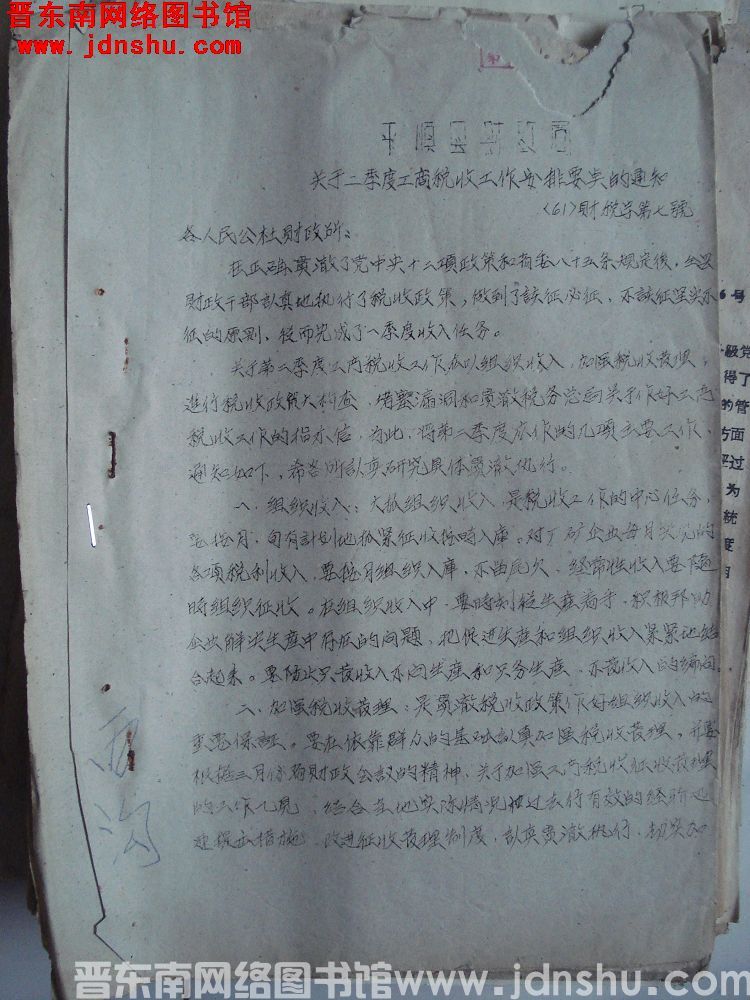 晋东南网络图书馆
www.jdnshu.com
平順县財政局
关于二季度工商税收工作安排要求的通知
(61)財税字第七號
各人民公社財政所：
在正确貫澈了党中央十二項政策和省委八十五条规定後，全县
財政干部認真地执行了税收政策，做到了該征必征，不該征坚决不
征的原则，從而完成了一季度收入任务。
关于第二季度工商税收工作应以组织收入，加强税收管理，
進行税收政策大检查，堵塞漏洞和贯澈税务总局关于作好工商
税收工作的指示信，为此，将第二季度应作的几項主要工作，
通知如下，希各所認真研究具体貫澈执行。
一、组织收入：大抓组织收入，是税收工作的中心任务，
要按月、旬有計划地抓紧征收按時入庫。对厂矿企业每月实现的
各項税利收入，要按月组织入庫，不出尾欠，经常性收入要随
時组织征收。在组织收入中，要時刻從生產着手，积极邦助
企业解决生產中存在的问題，把促进生產和组织收入紧紧地结
合起来。要防止只管收入不问生產和只务生產，不管收入的偏向。
二、加强税收管理：是貫澈税收政策作好组织收入的
重要保証。要在依靠群众的基础上認真加强税收管理，并要
根据三月份 財政会议的精神，关于加强工商税收征收管理
的工作意見，结合当地实际情况和过去行之有效的经驗迅
速提出措施，改进征收管理制度，認真貫澈执行，切实加
西沟
6号
级党
得了
的管
方面
平过
为
統
度
晋东南网络图书馆 www.jdnshu.com